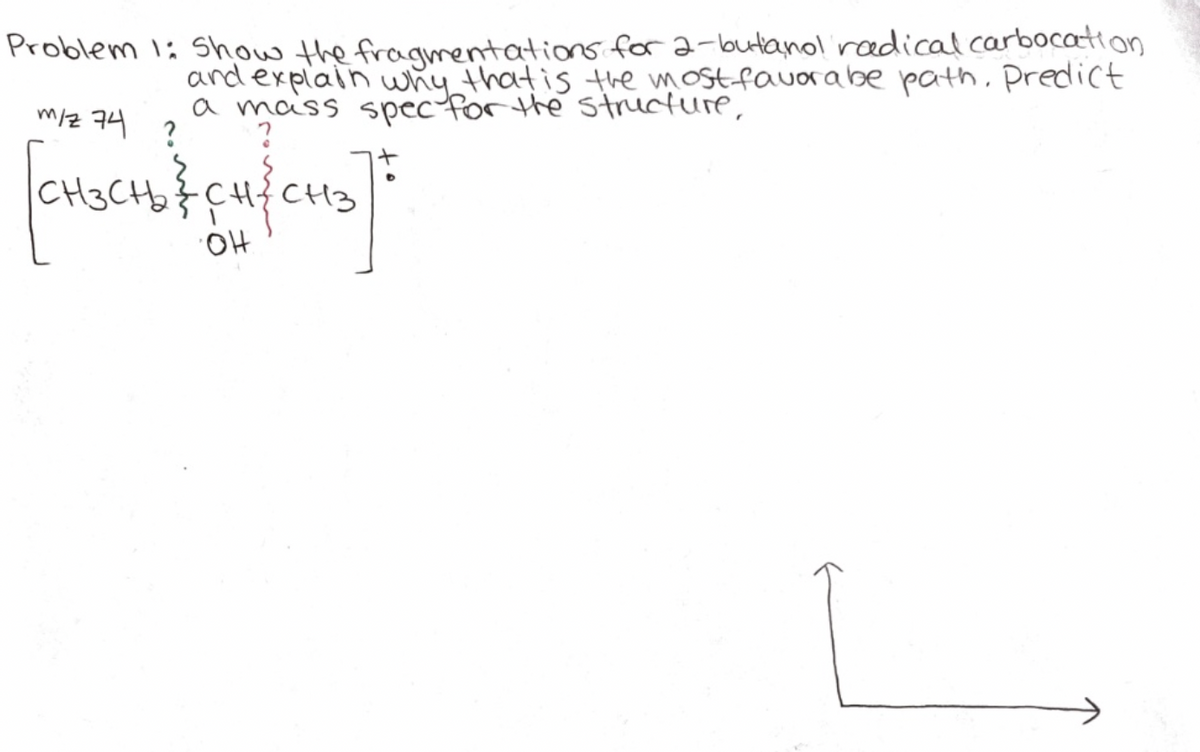 Problem 1: Show the fragmentations for 2-butanol radical carbocation,
and explain why that is the most favorabe path. Predict
a mass spec for the structure.
m/z 74
? ?
[CH3CH2 CH CH3]+•
OH